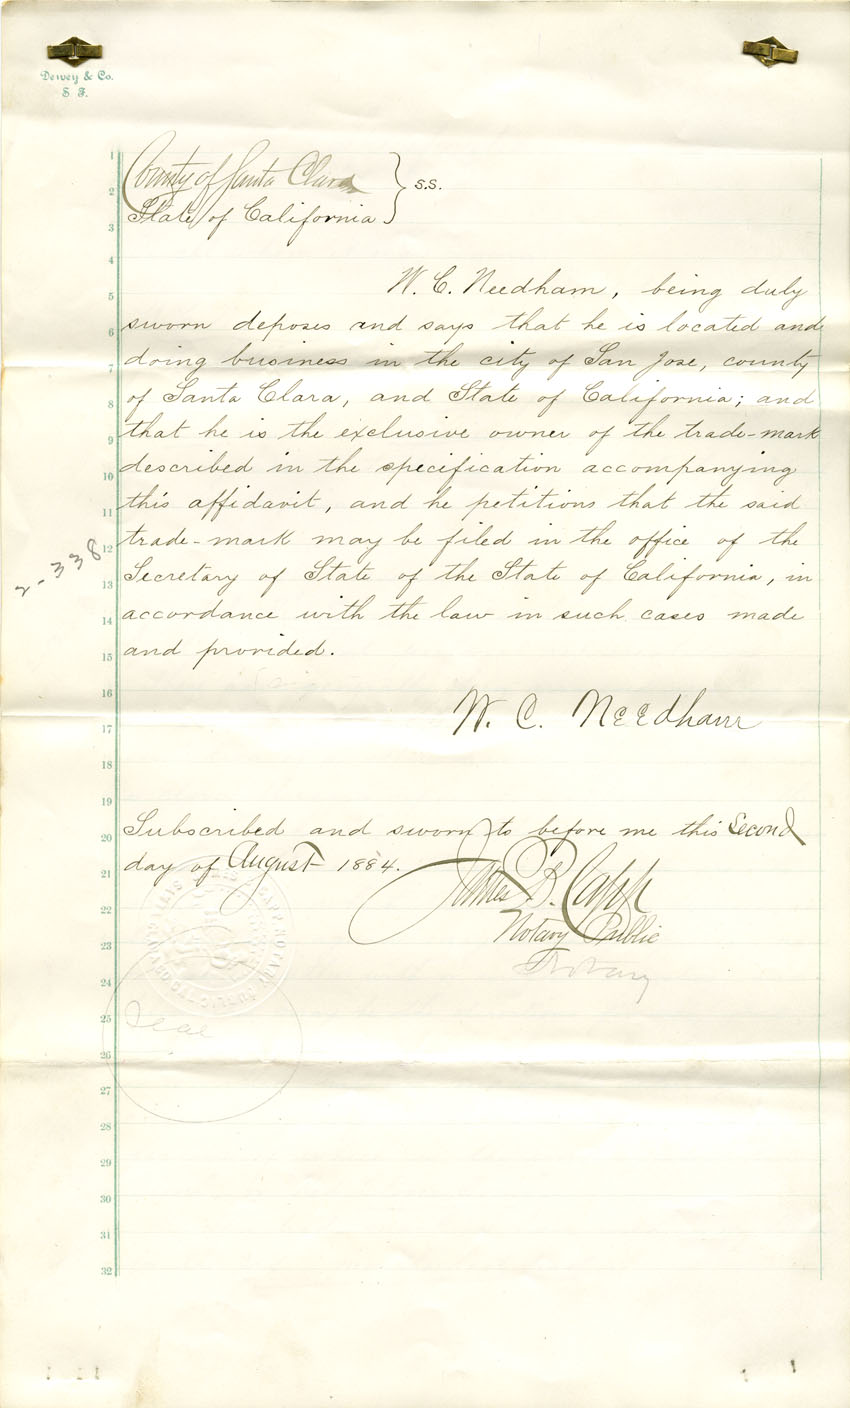 Dewey & Co.
S. F.
County of Santa Clara
State of California } s.s.
W. C. Needham, being duly
sworn deposes and says that he is located and
doing business in the city of San Jose, county
of Santa Clara, and State of California; and
that he is the exclusive owner of the trade-mark
described in the specification accompanying
this affidavit, and he petitions that the said
trade-mark may be filed in the office of the
Secretary of State of the State of California, in
accordance with the law in such cases made
and provided.
2-338
W. C. Needham
Subscribed and sworn to before me this Second
day of August 1884.
James B. Capp
Notary Public
Notary
Seal
1
2
3
4
5
6
7
8
9
10
11
12
13
14
15
16
17
18
19
20
21
22
23
24
25
26
27
28
29
30
31
32